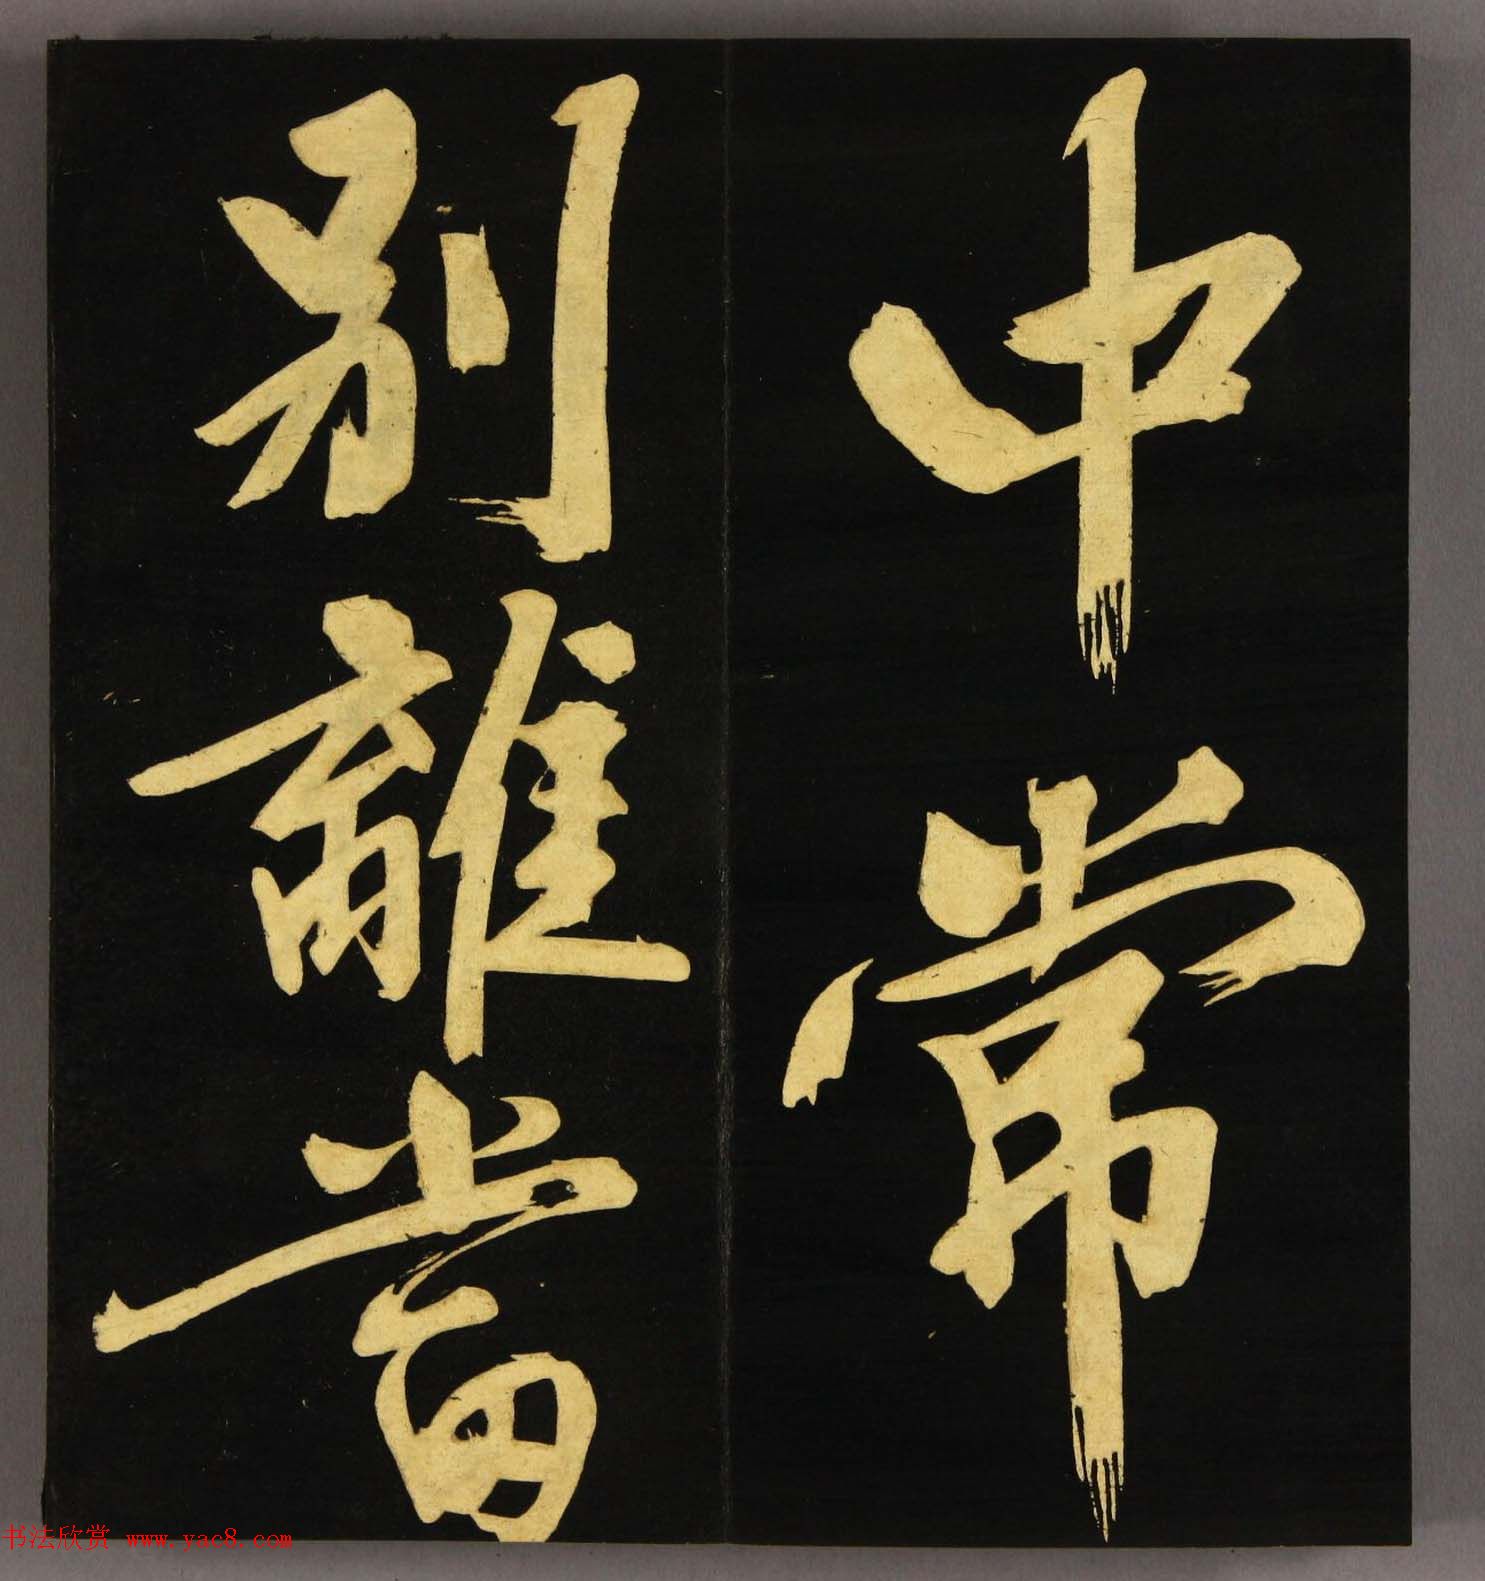 中常
別離當
书法欣赏 www.yac8.com